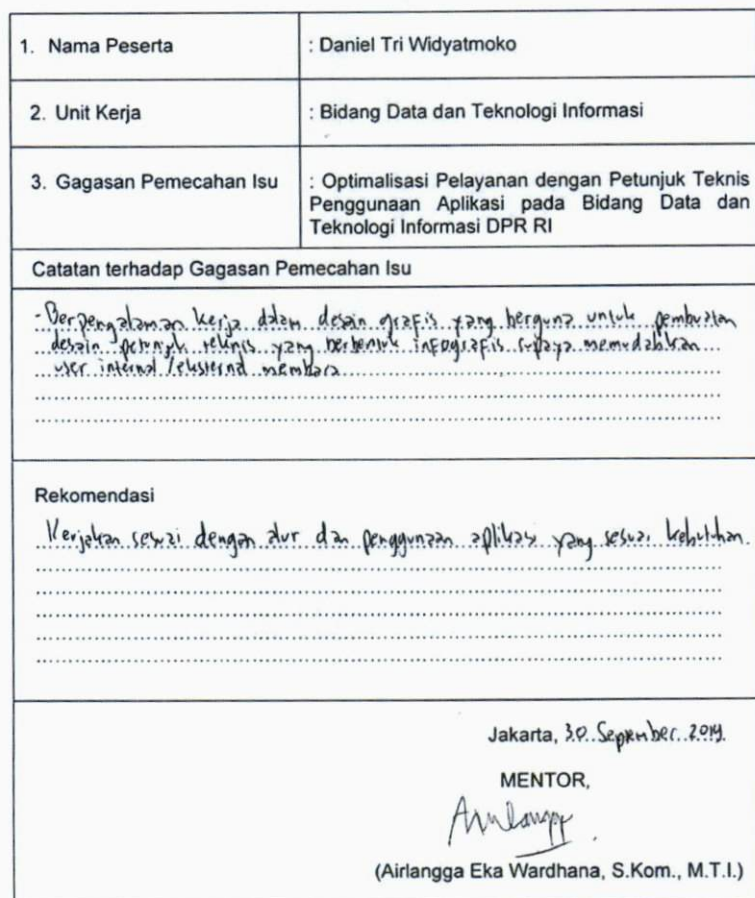 1. Nama Peserta : Daniel Tri Widyatmoko
2. Unit Kerja : Bidang Data dan Teknologi Informasi
3. Gagasan Pemecahan Isu : Optimalisasi Pelayanan dengan Petunjuk Teknis
Penggunaan Aplikasi pada Bidang Data dan
Teknologi Informasi DPR RI
Catatan terhadap Gagasan Pemecahan Isu
- Berpengalaman kerja dalam desain grafis yang berguna untuk pembuatan
desain petunjuk teknis yang berbentuk infografis supaya memudahkan
user internal / eksternal membaca
Rekomendasi
Kerjakan sesuai dengan alur dan penggunaan aplikasi yang sesuai kebutuhan.
Jakarta, 30 September 2019.
MENTOR,
(Airlangga Eka Wardhana, S.Kom., M.T.I.)